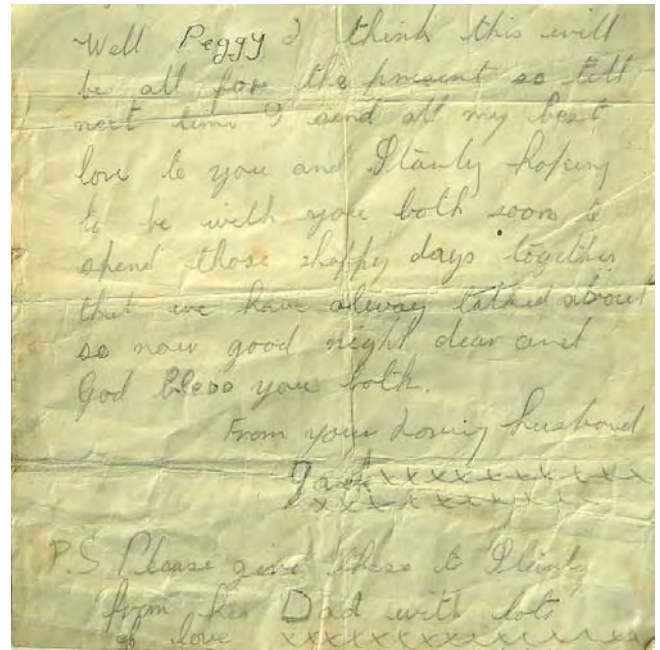 Well Peggy I think this will
be all for the present so till
next time I send all my best
love to you and Stanly hoping
to be with you both soon to
spend those happy days together
that we have alway talked about
so now good night dear and
God bless you both.
From your Loving husband
Jack xxxxxxxxxx
xxxxxxxxxx
P.S Please give these to
from his Dad with lots
of love xxxxxxxxxxxxx